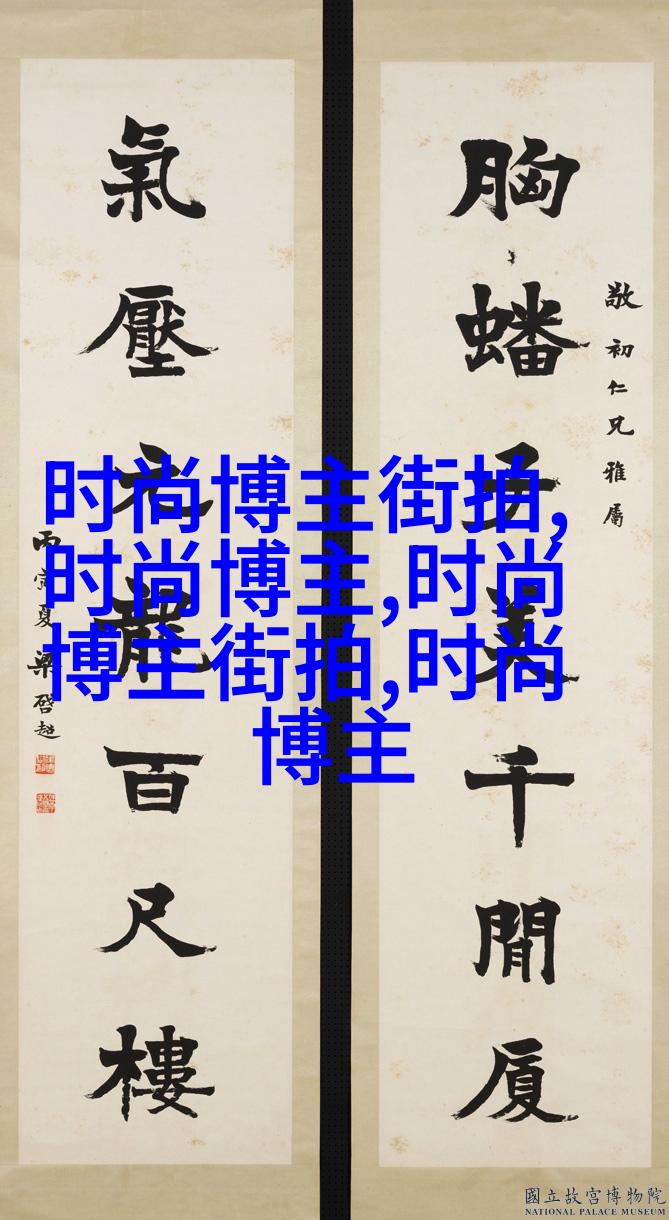 敬初仁兄雅屬
胸蟠子美千間厦
氣壓元龍百尺樓
丙寅夏梁啓超
时尚博主街拍,
时尚博主,时尚
博主街拍,时尚
博主
國立故宮博物院
NATIONAL PALACE MUSEUM